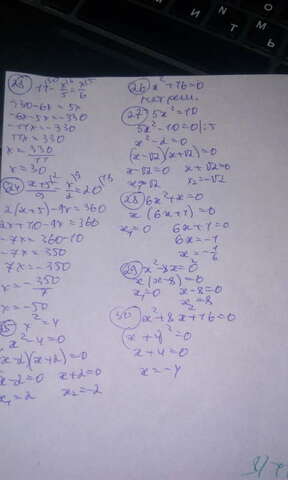 23) 11 - x/5 = x/6
330-6x=5x
-6x-5x=-330
-11x=-330
11x=330
x=330/11
x=30
24) (x+5)/9 - x/2 = 20
2(x+5)-9x=360
2x+10-9x=360
-7x=360-10
-7x=350
7x=-350
x=-350/7
x=-50
25) x²=4
x²-4=0
(x-2)(x+2)=0
x-2=0 x+2=0
x₁=2 x₂=-2
26) x²+16=0
нет реш.
27) 5x²=10
5x²-10=0|:5
x²-2=0
(x-√2)(x+√2)=0
x-√2=0 x+√2=0
x₁=√2 x₂=-√2
28) 6x²+x=0
x(6x+1)=0
x₁=0 6x+1=0
6x=-1
x=-1/6
29) x²-8x=0
x(x-8)=0
x₁=0 x-8=0
x₂=8
30) x²+8x+16=0
(x+4)²=0
x+4=0
x=-4